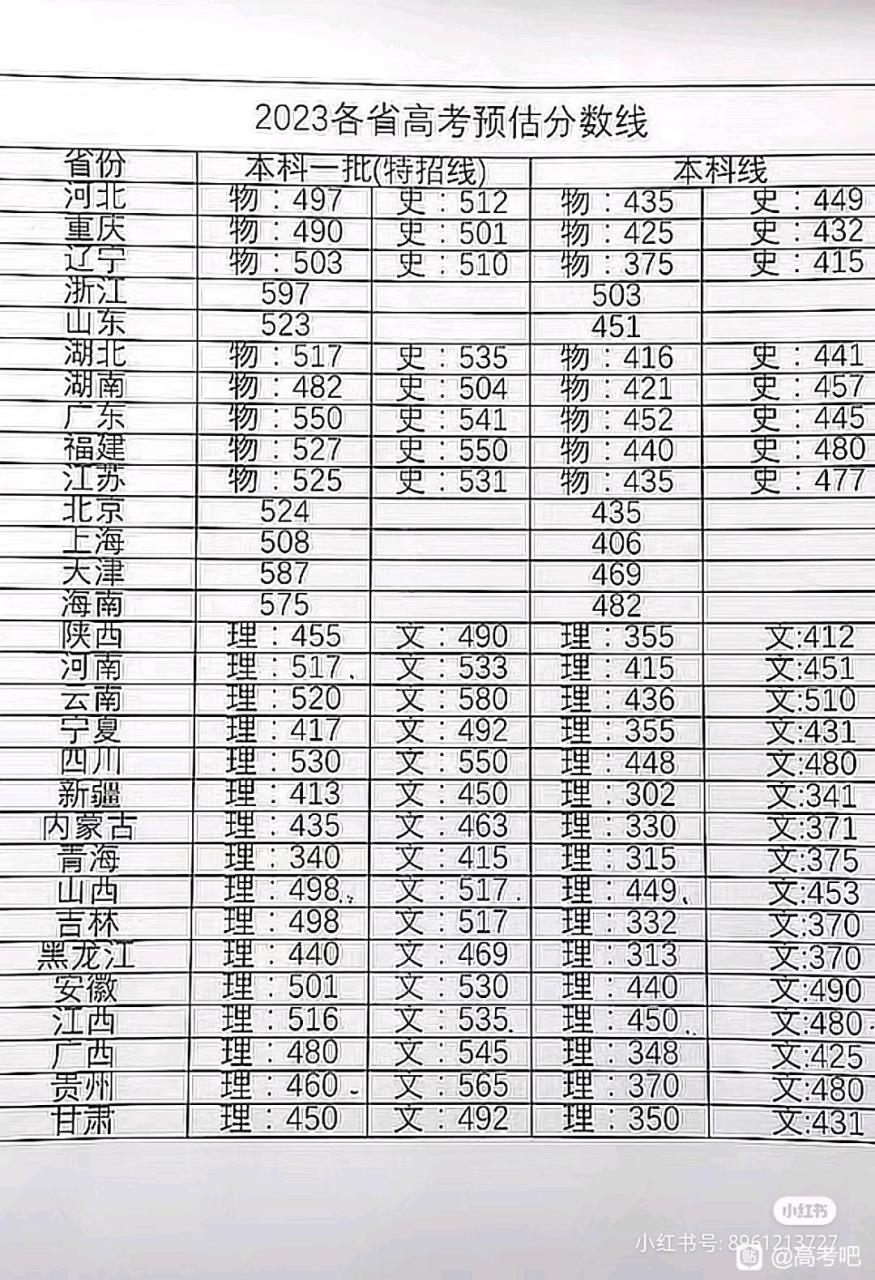 2023各省高考预估分数线
省份 本科一批(特招线) 本科线
河北 物：497 史：512 物：435 史：449
重庆 物：490 史：501 物：425 史：432
辽宁 物：503 史：510 物：375 史：415
浙江 597 503
山东 523 451
湖北 物：517 史：535 物：416 史：441
湖南 物：482 史：504 物：421 史：457
广东 物：550 史：541 物：452 史：445
福建 物：527 史：550 物：440 史：480
江苏 物：525 史：531 物：435 史：477
北京 524 435
上海 508 406
天津 587 469
海南 575 482
陕西 理：455 文：490 理：355 文:412
河南 理：517 文：533 理：415 文:451
云南 理：520 文：580 理：436 文:510
宁夏 理：417 文：492 理：355 文:431
四川 理：530 文：550 理：448 文:480
新疆 理：413 文：450 理：302 文:341
内蒙古 理：435 文：463 理：330 文:371
青海 理：340 文：415 理：315 文:375
山西 理：498 文：517 理：449 文:453
吉林 理：498 文：517 理：332 文:370
黑龙江 理：440 文：469 理：313 文:370
安徽 理：501 文：530 理：440 文:490
江西 理：516 文：535 理：450 文:480
广西 理：480 文：545 理：348 文:425
贵州 理：460 文：565 理：370 文:480
甘肃 理：450 文：492 理：350 文:431
小红书
小红书号: 8961213727
贴 @高考吧